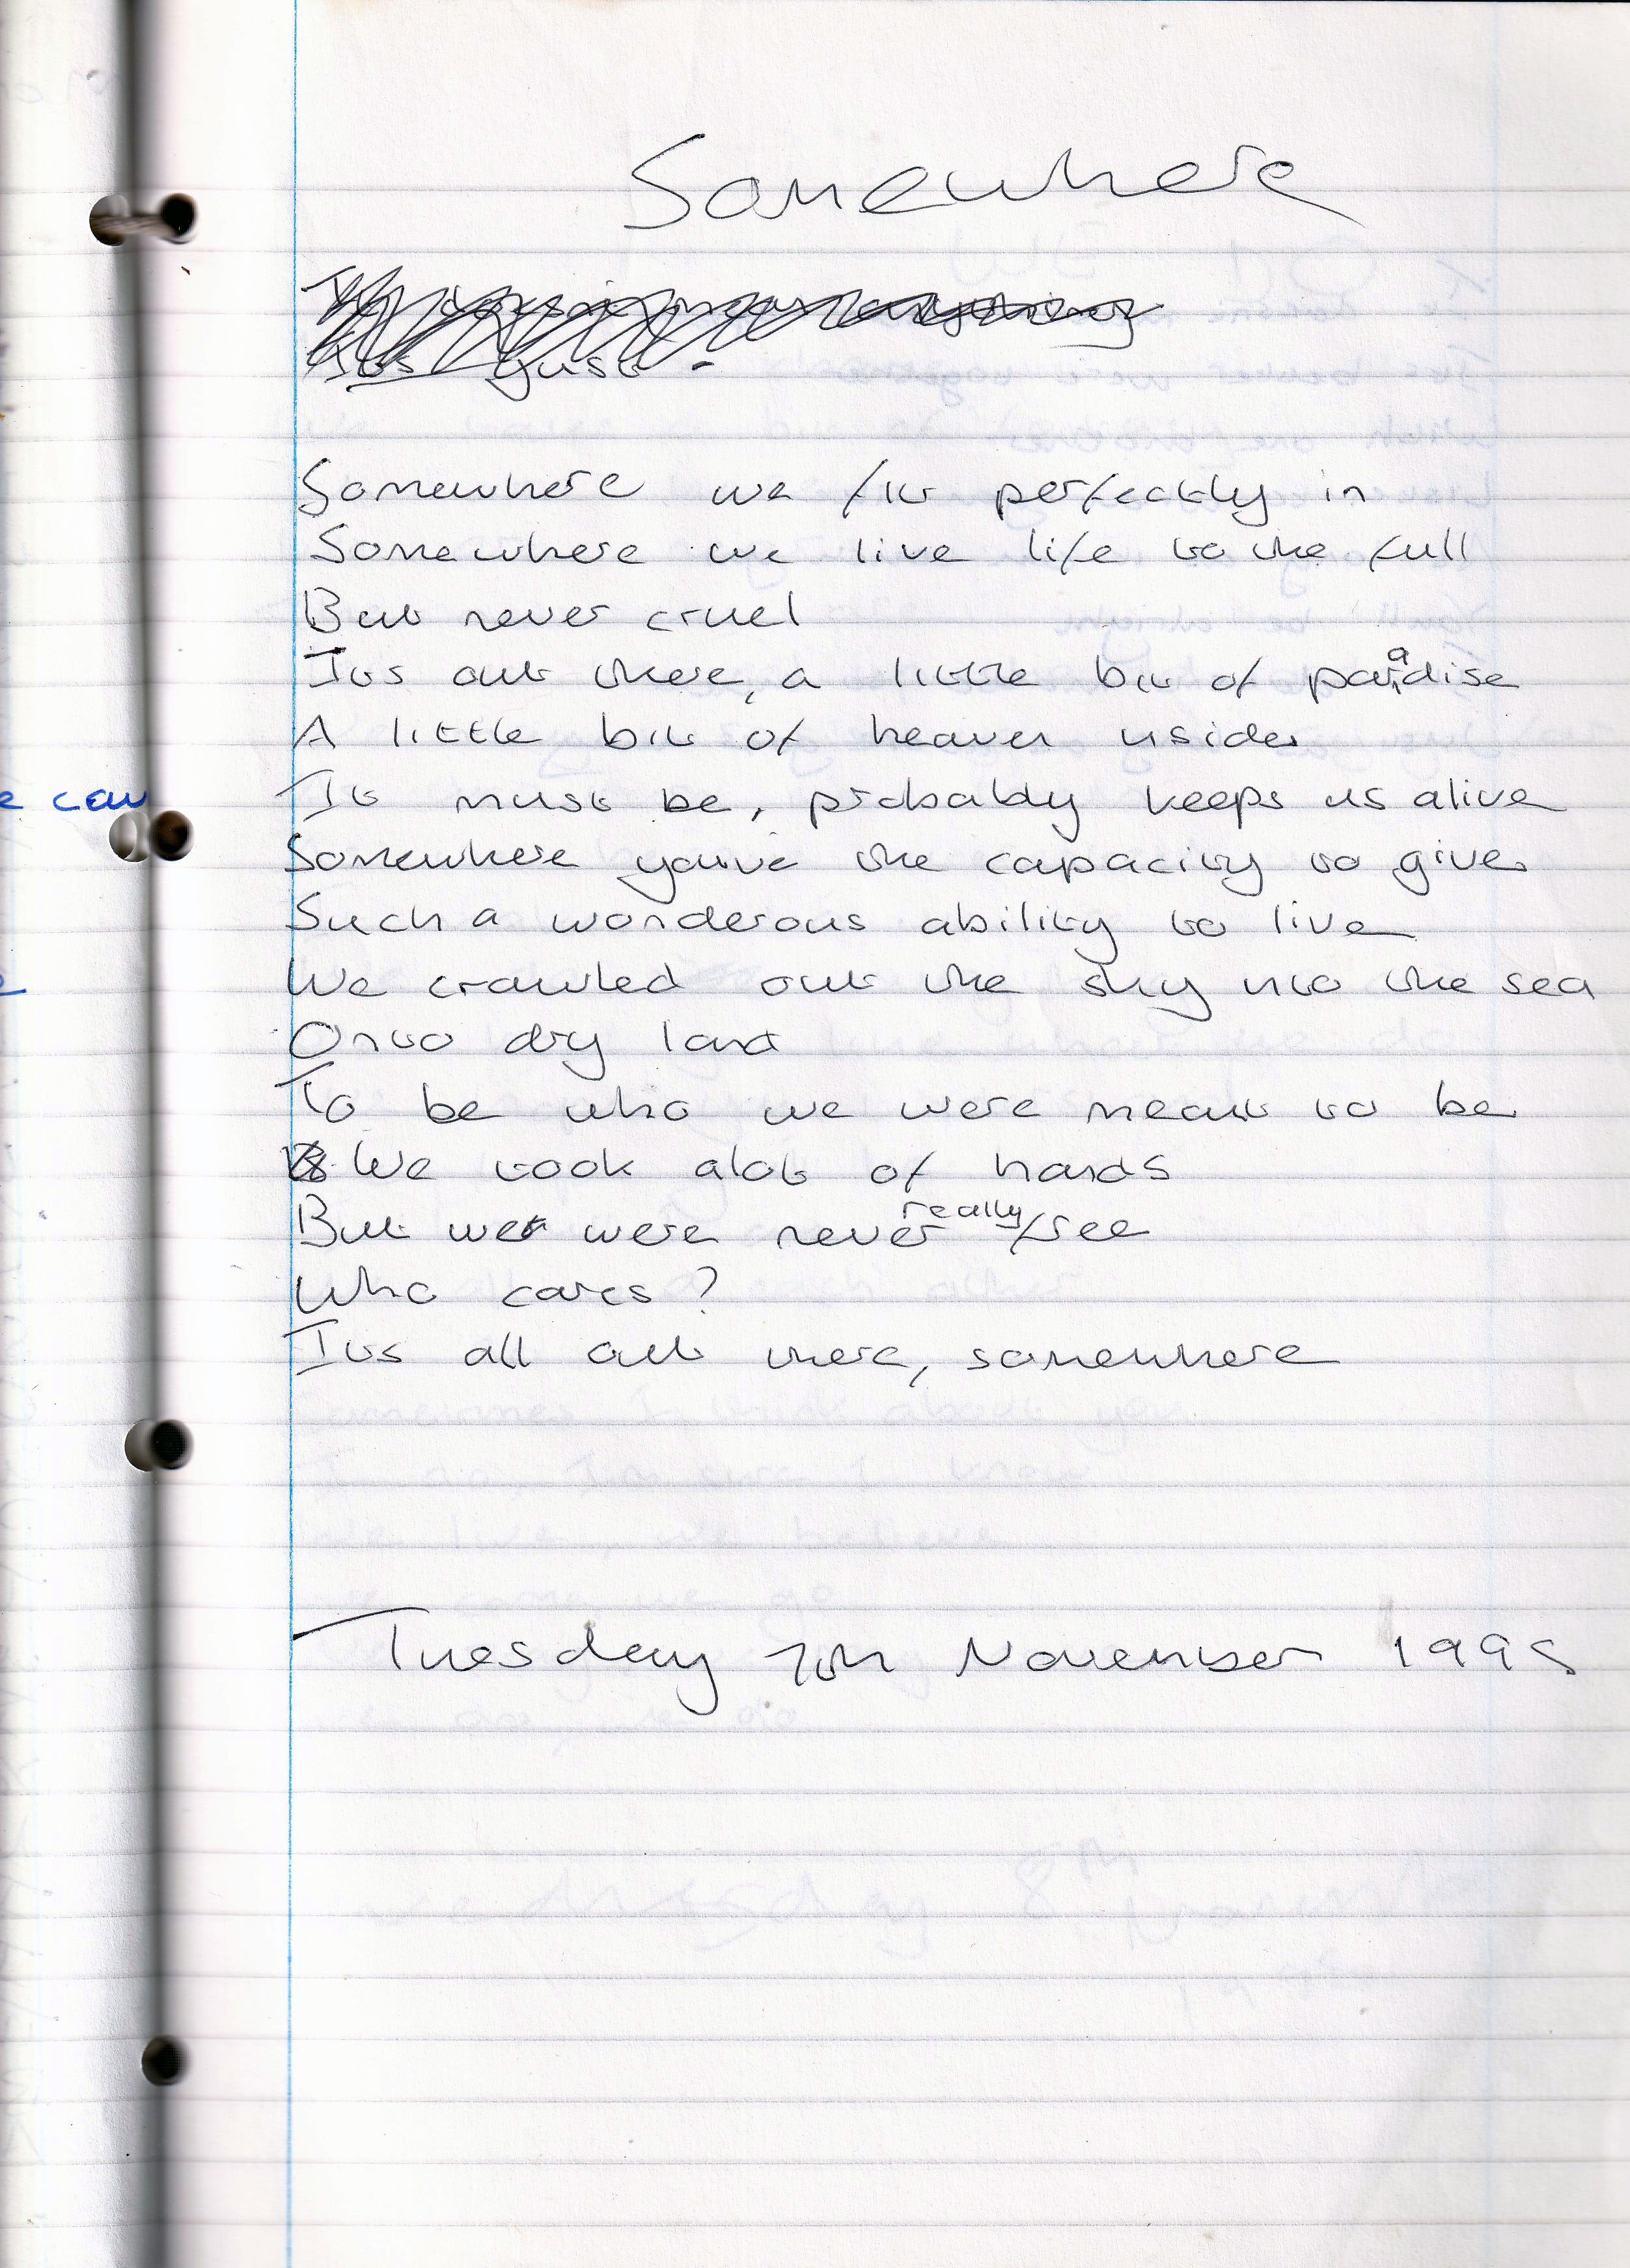 Somewhere
Its just -
Somewhere we fit perfectly in
Somewhere we live life to the full
But never cruel
Its out there, a little bit of paradise
A little bit of heaven inside
It must be, probably keeps us alive
Somewhere you've the capacity to give
Such a wonderous ability to live
We crawled out the sky into the sea
Onto dry land
To be who we were meant to be
We took alot of hands
But we were never really free
Who cares?
Its all out there, somewhere
Tuesday 7th November 1995